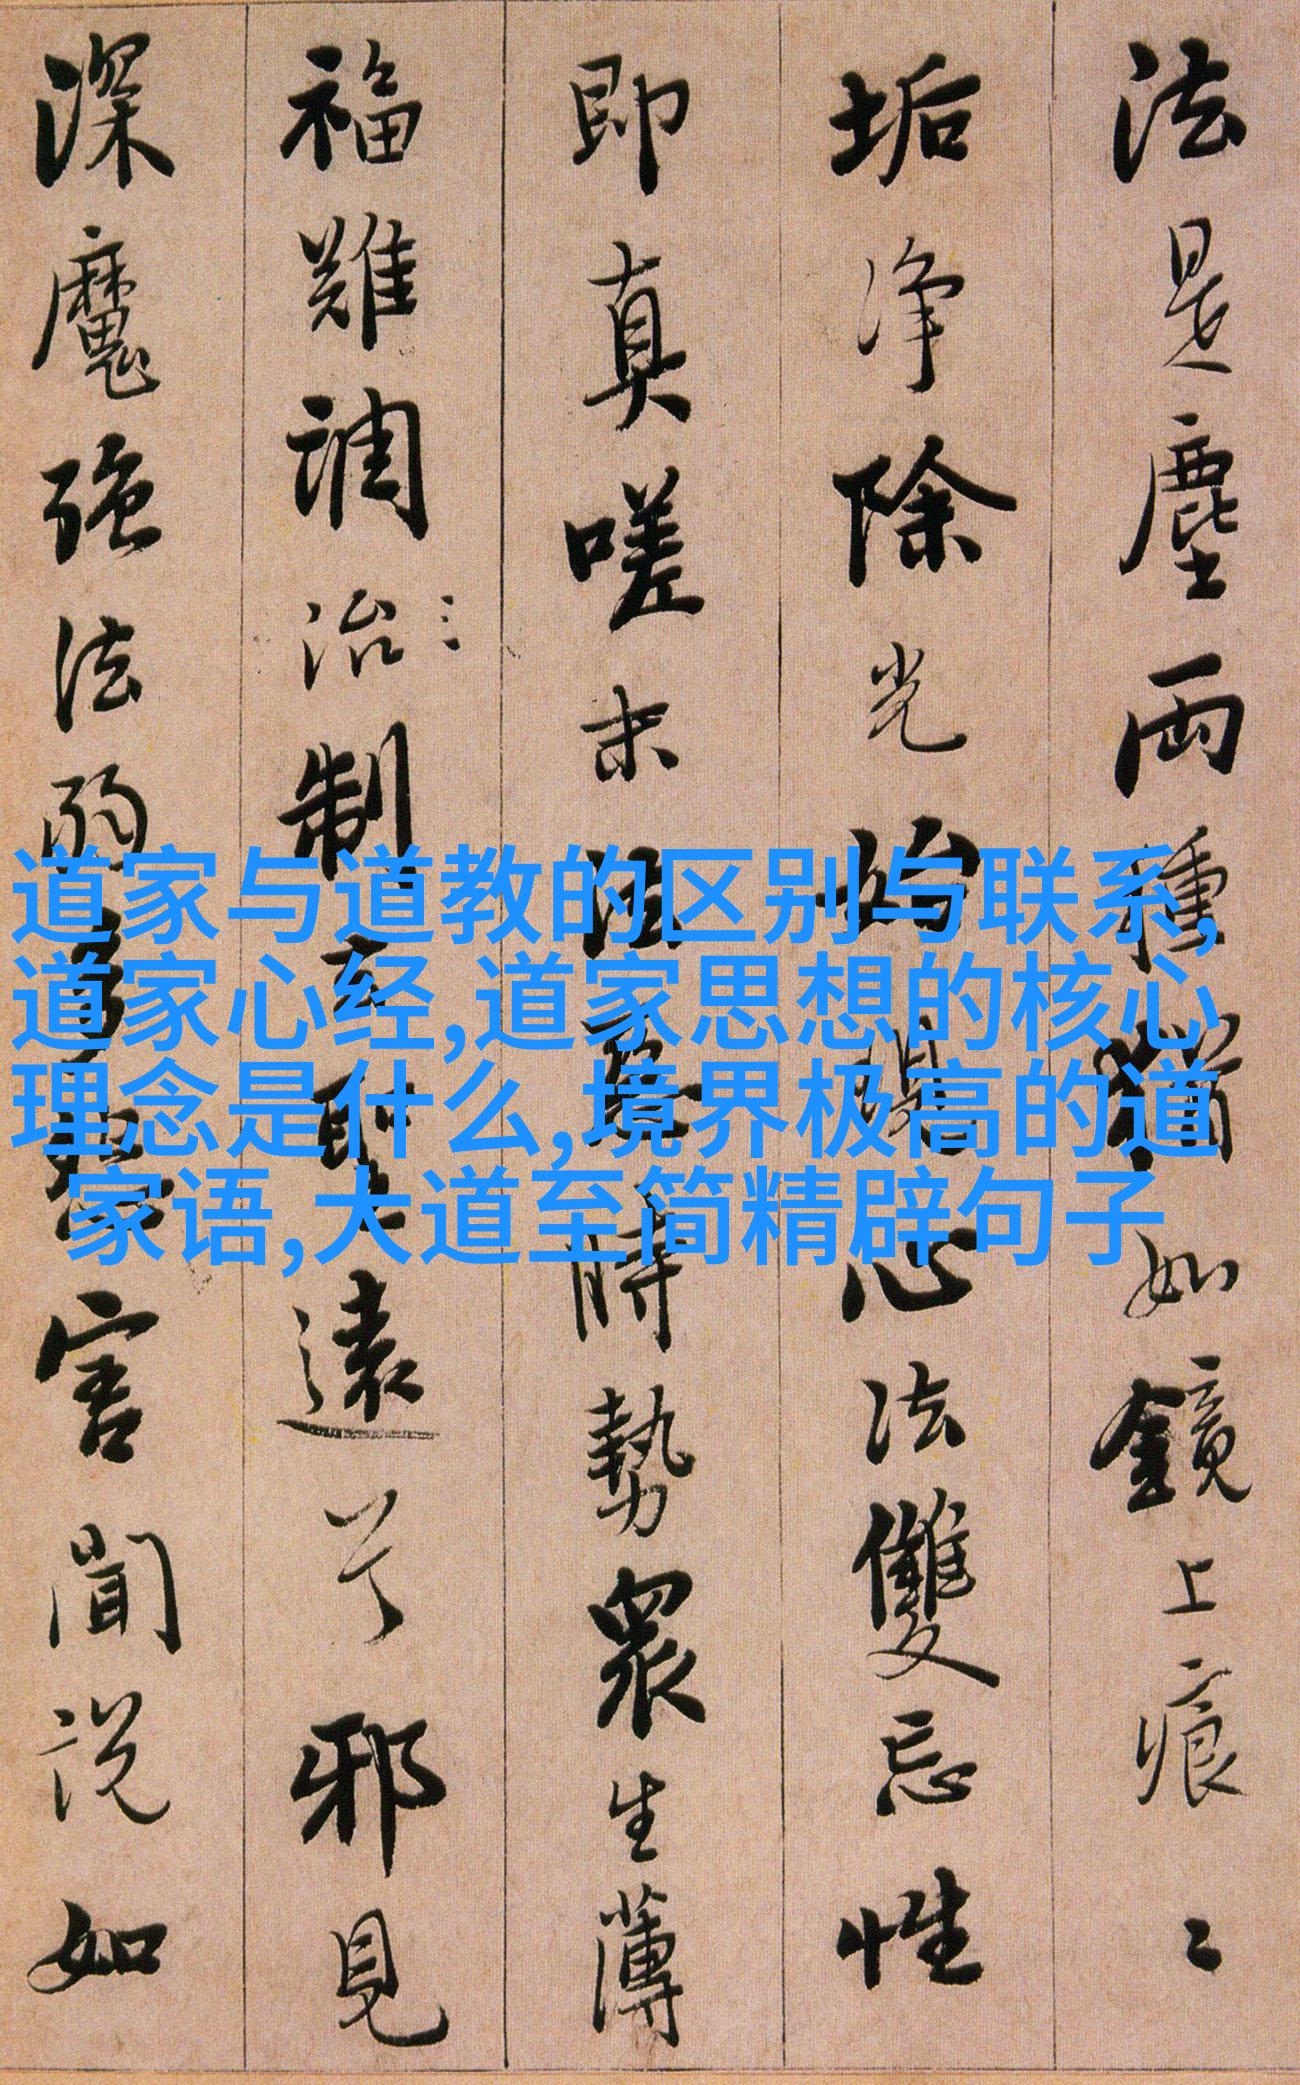 法是塵兩種猶如鏡上痕〻
垢淨除光始現心法雙忘性
即真嗟末法惡時勢眾生薄
福難調治制去聖遠兮邪見
深魔強法弱多怨害聞說如
道家与道教的区别与联系,
道家心经,道家思想的核心
理念是什么,境界极高的道
家语,大道至简精辟句子